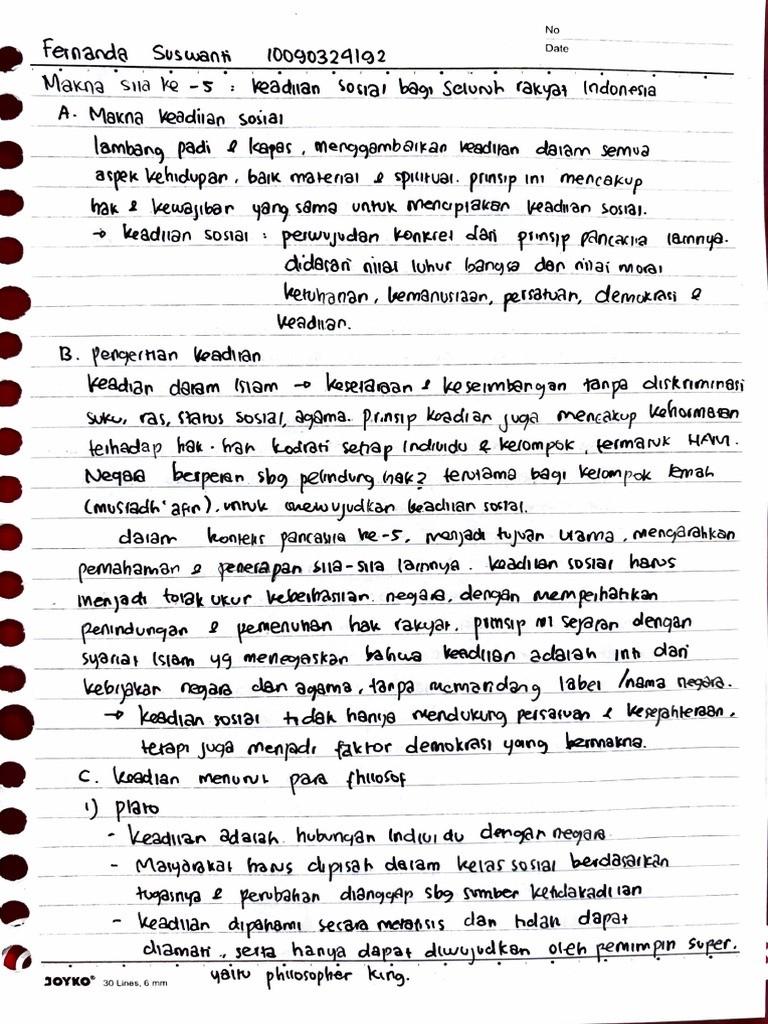 No
Date
Fernanda Suswanti 10090324192
Makna sila ke-5 : Keadilan sosial bagi seluruh rakyat Indonesia
A. Makna keadilan sosial
lambang padi & kapas, menggambarkan keadilan dalam semua
aspek kehidupan, baik material & spiritual. prinsip ini mencakup
hak & kewajiban yang sama untuk menciptakan keadilan sosial.
→ keadilan sosial : perwujudan konkret dari prinsip pancasila lainnya.
didasari nilai luhur bangsa dan nilai moral
ketuhanan, kemanusiaan, persatuan, demokrasi &
keadilan.
B. Pengertian keadilan
Keadilan dalam Islam → keselarasan & keseimbangan tanpa diskriminasi
suku, ras, status sosial, agama. Prinsip keadilan juga mencakup kehormatan
terhadap hak-hak kodrati setiap individu & kelompok, termasuk HAM.
Negara berperan sbg pelindung hak² terutama bagi kelompok lemah
(mustadh'afin), untuk mewujudkan keadilan sosial.
dalam konteks pancasila ke-5, menjadi tujuan utama, mengarahkan
pemahaman & penerapan sila-sila lainnya. keadilan sosial harus
menjadi tolak ukur keberhasilan negara, dengan memperhatikan
perlindungan & pemenuhan hak rakyat. prinsip ini sejalan dengan
syariat Islam yg menegaskan bahwa keadilan adalah inti dari
kebijakan negara dan agama, tanpa memandang label/nama negara.
→ keadilan sosial tidak hanya mendukung persatuan & kesejahteraan,
tetapi juga menjadi faktor demokrasi yang bermakna.
C. keadilan menurut para philosof
1) plato
- Keadilan adalah hubungan individu dengan negara
- Masyarakat harus dipisah dalam kelas sosial berdasarkan
tugasnya & perubahan dianggap sbg sumber ketidakadilan
- keadilan dipahami secara metafisis dan tidak dapat
diamati, serta hanya dapat diwujudkan oleh pemimpin super.
yaitu philosopher king.
JOYKO® 30 Lines, 6 mm